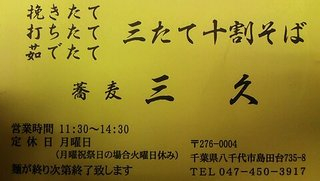 挽きたて
打ちたて
茹でたて
三たて十割そば
蕎麦 三久
営業時間 11:30～14:30
定休日 月曜日
(月曜祝祭日の場合火曜日休み)
麺が終り次第終了致します
〒276-0004
千葉県八千代市島田台735-8
TEL047-450-3917